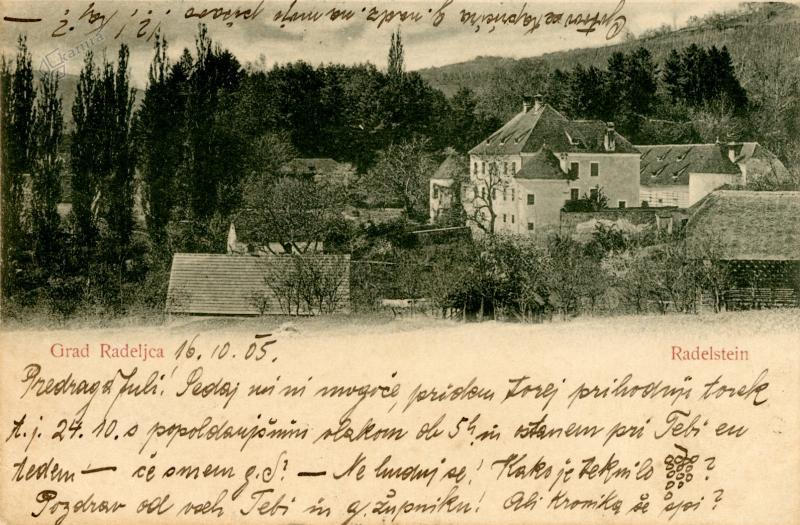 kamra
Grad Radeljca 16.10.05. Radelstein
Predraga Juli! Sedaj mi ni mogoče, pridem torej prihodnji torek
t.j. 24.10. s popoldanjšnim vlakom ob 5h in ostanem pri Tebi en
teden — če smem g. S? — Ne huduj se! Kako je teknilo ?
Pozdrav od vseh Tebi in g. župniku! Ali kronika še spi?